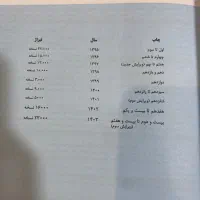 چاپ سال تیراژ
اول تا سوم ۱۳۹۵ نسخه
چهارم تا ششم ۱۳۹۶ نسخه
هفتم تا نهم (ویرایش جدید) ۱۳۹۷ نسخه
دهم و یازدهم ۱۳۹۸ نسخه
دوازدهم ۱۳۹۹ نسخه
سیزدهم تا پانزدهم ۱۴۰۰ نسخه
شانزدهم (ویرایش سوم) ۱۴۰۱ نسخه
هفدهم تا بیست و یکم ۱۴۰۲ ۱۶۰۰۰ نسخه
بیست و دوم تا بیست و هفتم ۱۴۰۳ ۲۳۰۰۰ نسخه
(ویرایش سوم)